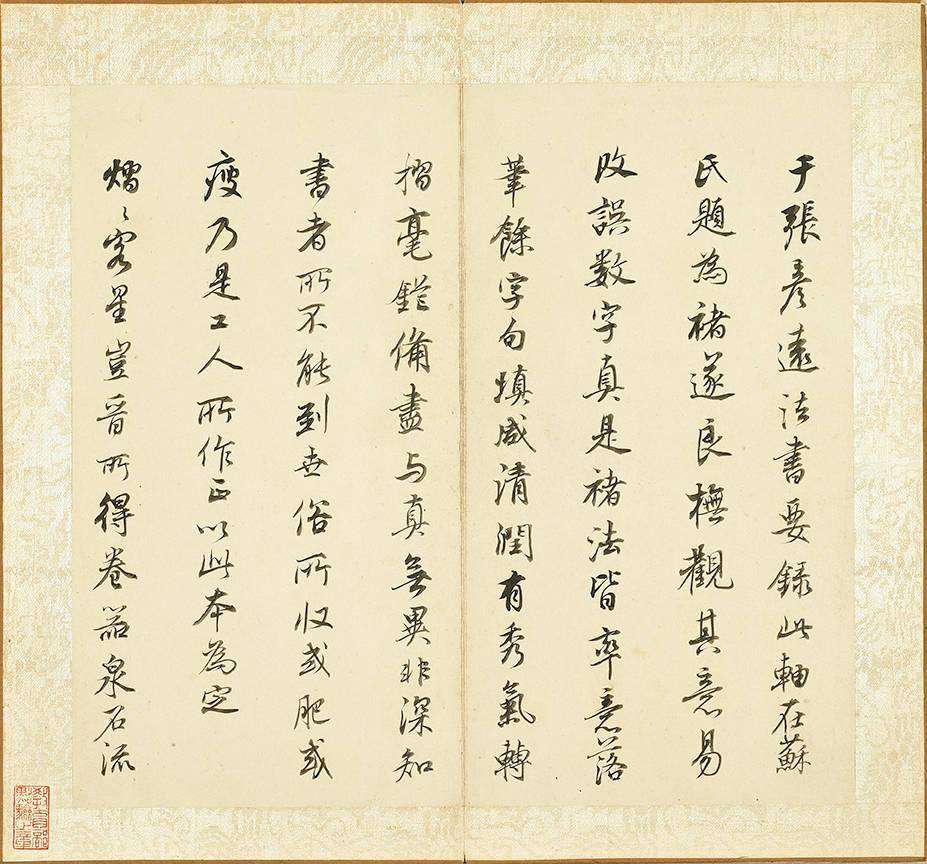 于張彥遠法書要錄此軸在蘇
氏題為褚遂良橅觀其意易
改誤数字真是褚法皆率意落
筆餘字句填咸清潤有秀氣轉
摺毫鋩備盡与真無異非深知
書者所不能到世俗所収或肥或
瘦乃是工人所作正以此本為定
熠〻客星豈晉所得卷器泉石流
教育部
點驗之章